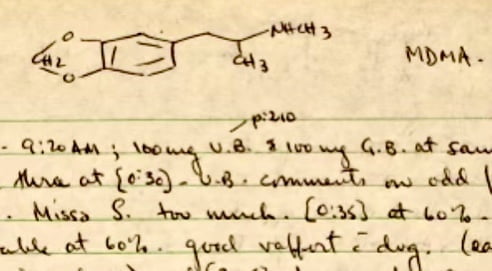 O
CH2
O
NHCH3
CH3
MDMA.
p:210
- 9:20 AM; 100 mg V.B. & 100 mg G.B. at sam
three at [0:30] - V.B. comments on odd
. Missa S. too much. [0:35] at 60%.
able at 60%. good rapport c̄ drug. (ea